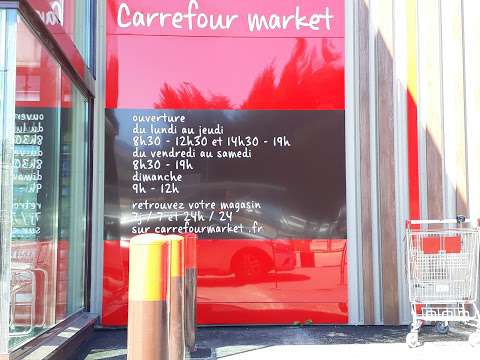 Carrefour market
ouverture
du lundi au jeudi
8h30 - 12h30 et 14h30 - 19h
du vendredi au samedi
8h30 - 19h
dimanche
9h - 12h
retrouvez votre magasin
7j / 7 et 24h / 24
sur carrefourmarket .fr